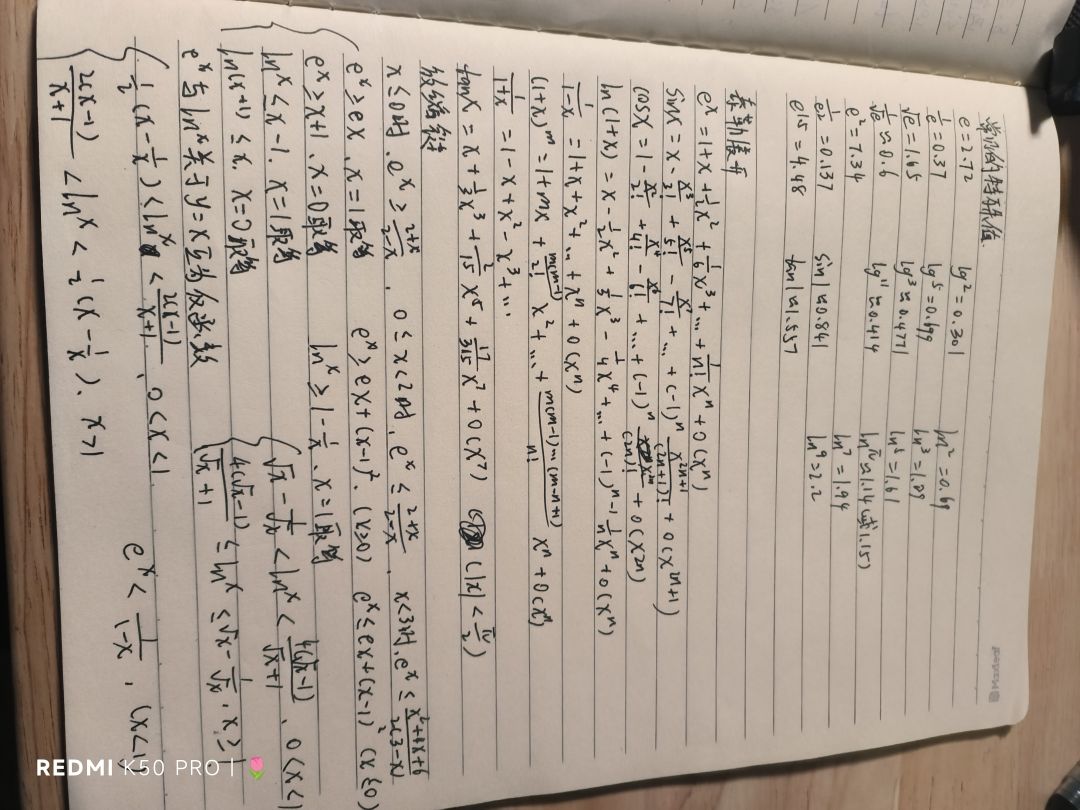 常见的特殊值
e=2.72 lg²=0.301 ln²=0.69
1/e=0.37 lg⁵=0.699 ln³=1.09
√e=1.65 lg³≈0.4771 ln⁵=1.61
1/√e≈0.6 lg''≈0.414 ln^π≈1.14(或1.15)
e²=7.34 ln⁷=1.94
1/e²=0.137 sin1≈0.841 ln⁹=2.2
e^1.5=4.48 tan1≈1.557
泰勒展开
e^x=1+x+1/2x²+1/6x³+...+1/n!x^n+0(x^n)
sinx=x-x³/3!+x⁵/5!-x⁷/7!+...+(-1)^n x^(2n+1)/(2n+1)!+0(x^(2n+1))
cosx=1-x²/2!+x⁴/4!-x⁶/6!+...+(-1)^n x^(2n)/(2n)!+0(x^(2n))
ln(1+x)=x-1/2x²+1/3x³-1/4x⁴+...+(-1)^(n-1) 1/n x^n+0(x^n)
1/(1-x)=1+x+x²+...+x^n+0(x^n)
(1+x)^m=1+mx+m(m-1)/2! x²+...+m(m-1)...(m-n+1)/n! x^n+0(x^n)
1/(1+x)=1-x+x²-x³+...
tanx=x+1/3x³+2/15x⁵+17/315x⁷+0(x⁷) (|x|<π/2)
放缩
x≤0时,e^x≥(2+x)/(2-x),0≤x<2时,e^x≤(2+x)/(2-x),x<3时,e^x≤(x²+4x+6)/2(3-x)
e^x≥ex,x=1取等 e^x≥ex+(x-1)².(x≥0) e^x≤ex+(x-1)²(x≤0)
e^x≥x+1,x=0取等 ln^x≥1-1/x,x=1取等 √x-1/√x<ln^x<4(√x-1)/(√x+1),0<x<1
ln^x≤x-1.x=1取等 4(√x-1)/(√x+1)≤ln^x≤√x-1/√x,x≥1
ln(x+1)≤x.x=0取等
e^x与ln^x关于y=x互为反函数
1/2(x-1/x)<ln^x<2(x-1)/(x+1),0<x<1
2(x-1)/(x+1)<ln^x<1/2(x-1/x).x>1
e^x<1/(1-x),(x<1)
REDMI K50 PRO |